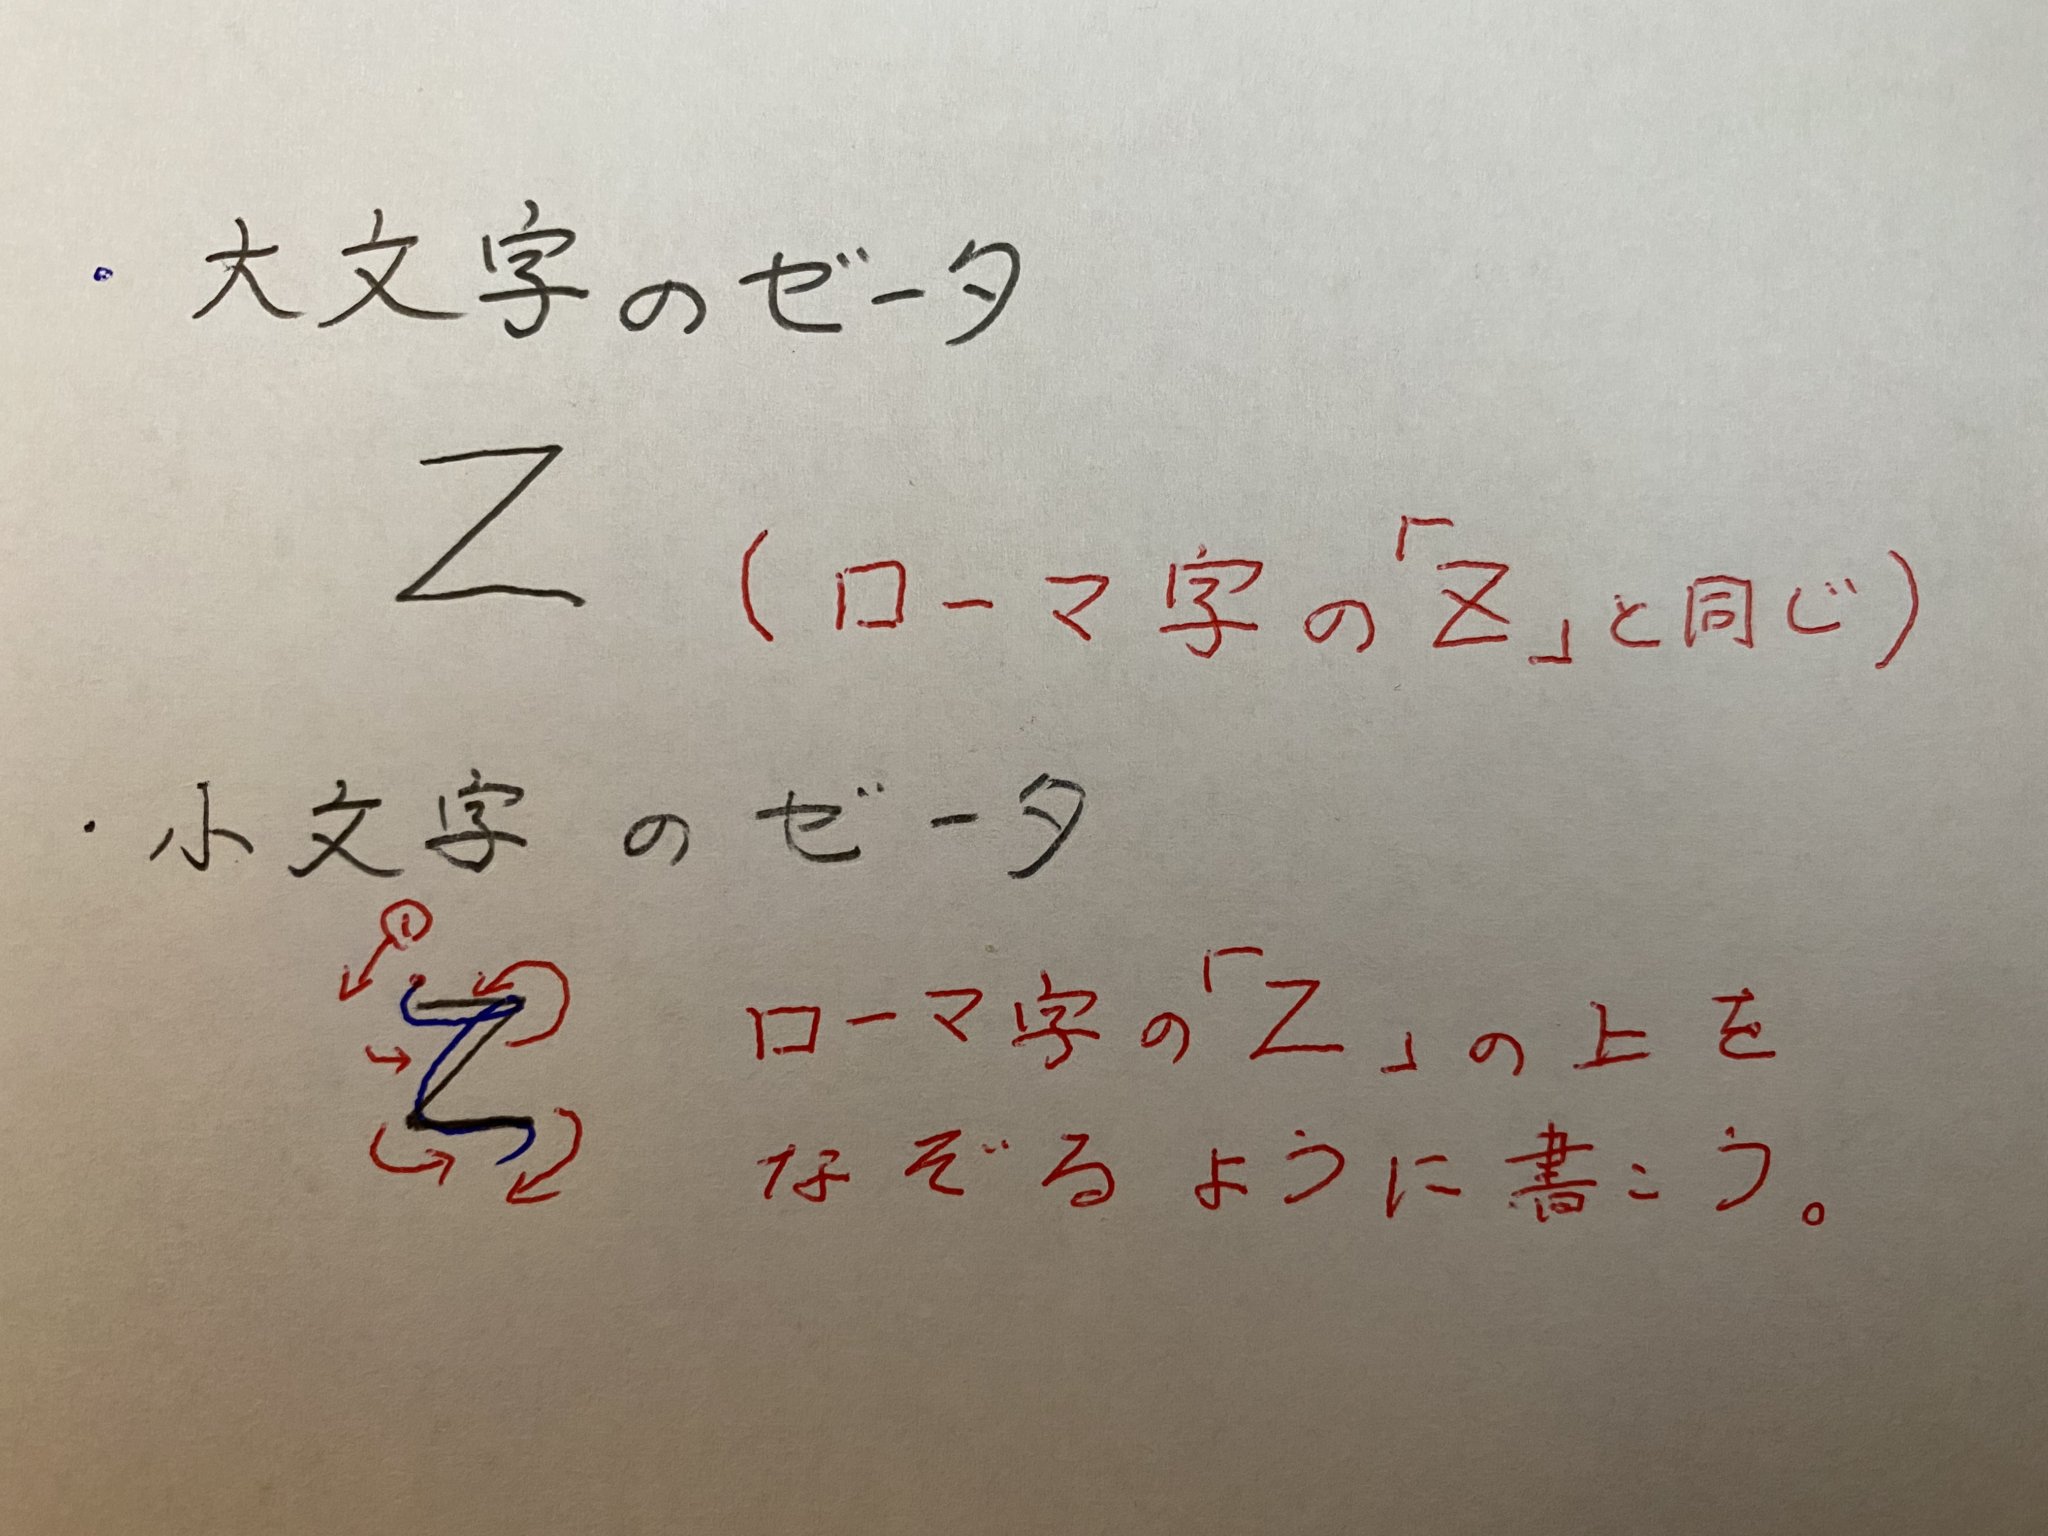 ・大文字のゼータ
Z
(ローマ字の「Z」と同じ)
・小文字のゼータ
①
ローマ字の「Z」の上を
なぞるように書こう。